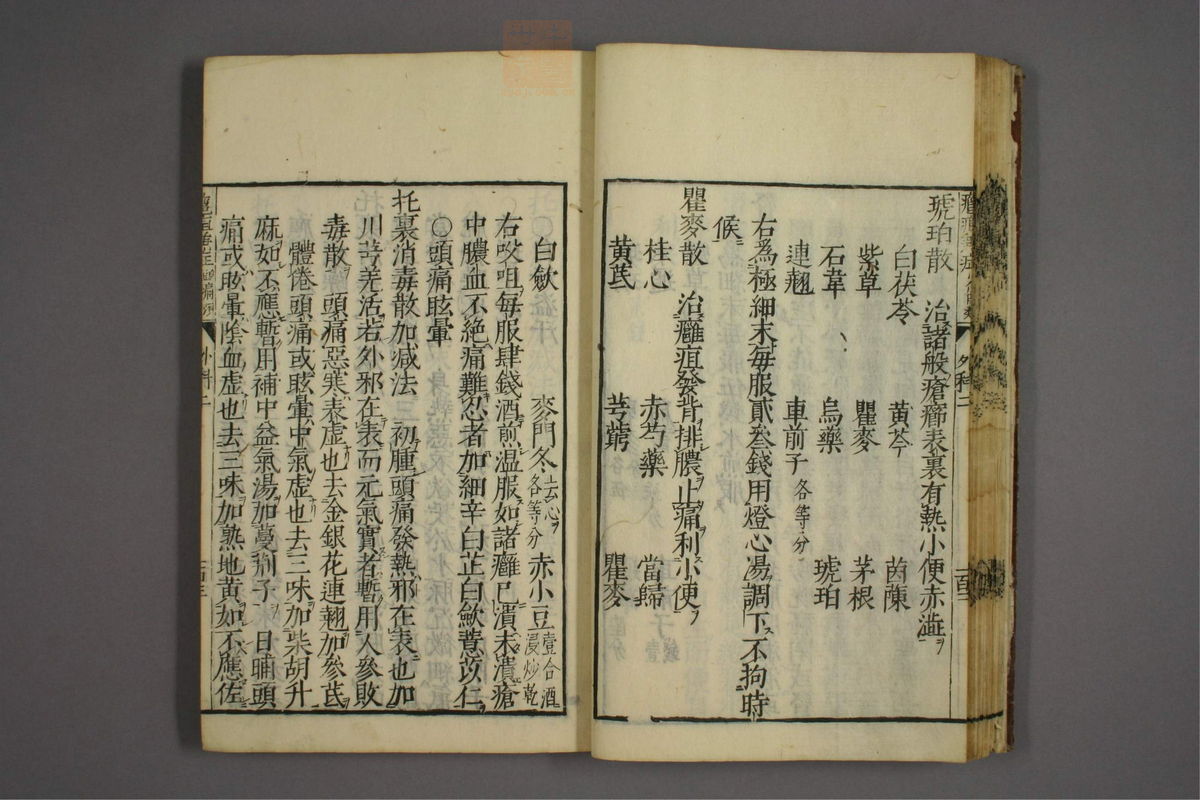 琥珀散　治諸般瘡癤表裏有熱小便赤澁ヲ
白茯苓　黄芩　茵蔯
紫草　瞿麥　茅根
石韋　烏藥　琥珀
連翹　車前子各等分
右爲極細末毎服貳叁錢用燈心湯調下不拘時
候
瞿麥散　治癰疽發背排膿止痛利小便
桂心　赤芍藥　當歸
黄芪　芎藭　瞿麥
白歛　麥門冬去心各等分　赤小豆壹合酒浸炒乾
右㕮咀毎服肆錢酒煎温服如諸癰已潰未潰瘡
中膿血不絶痛難忍者加細辛白芷白歛薏苡仁
○頭痛眩暈
托裏消毒散加减法　初腫頭痛發熱邪在表也加
川芎羌活若外邪在表而元氣實者暫用人參敗
毒散　頭痛惡寒表虚也去金銀花連翹加參芪
體倦頭痛或眩暈中氣虚也去三味加柴胡升
麻如不應暫用補中益氣湯加蔓荆子　日晡頭
痛或眩暈陰血虚也去三味加熟地黄如不應佐
外科二